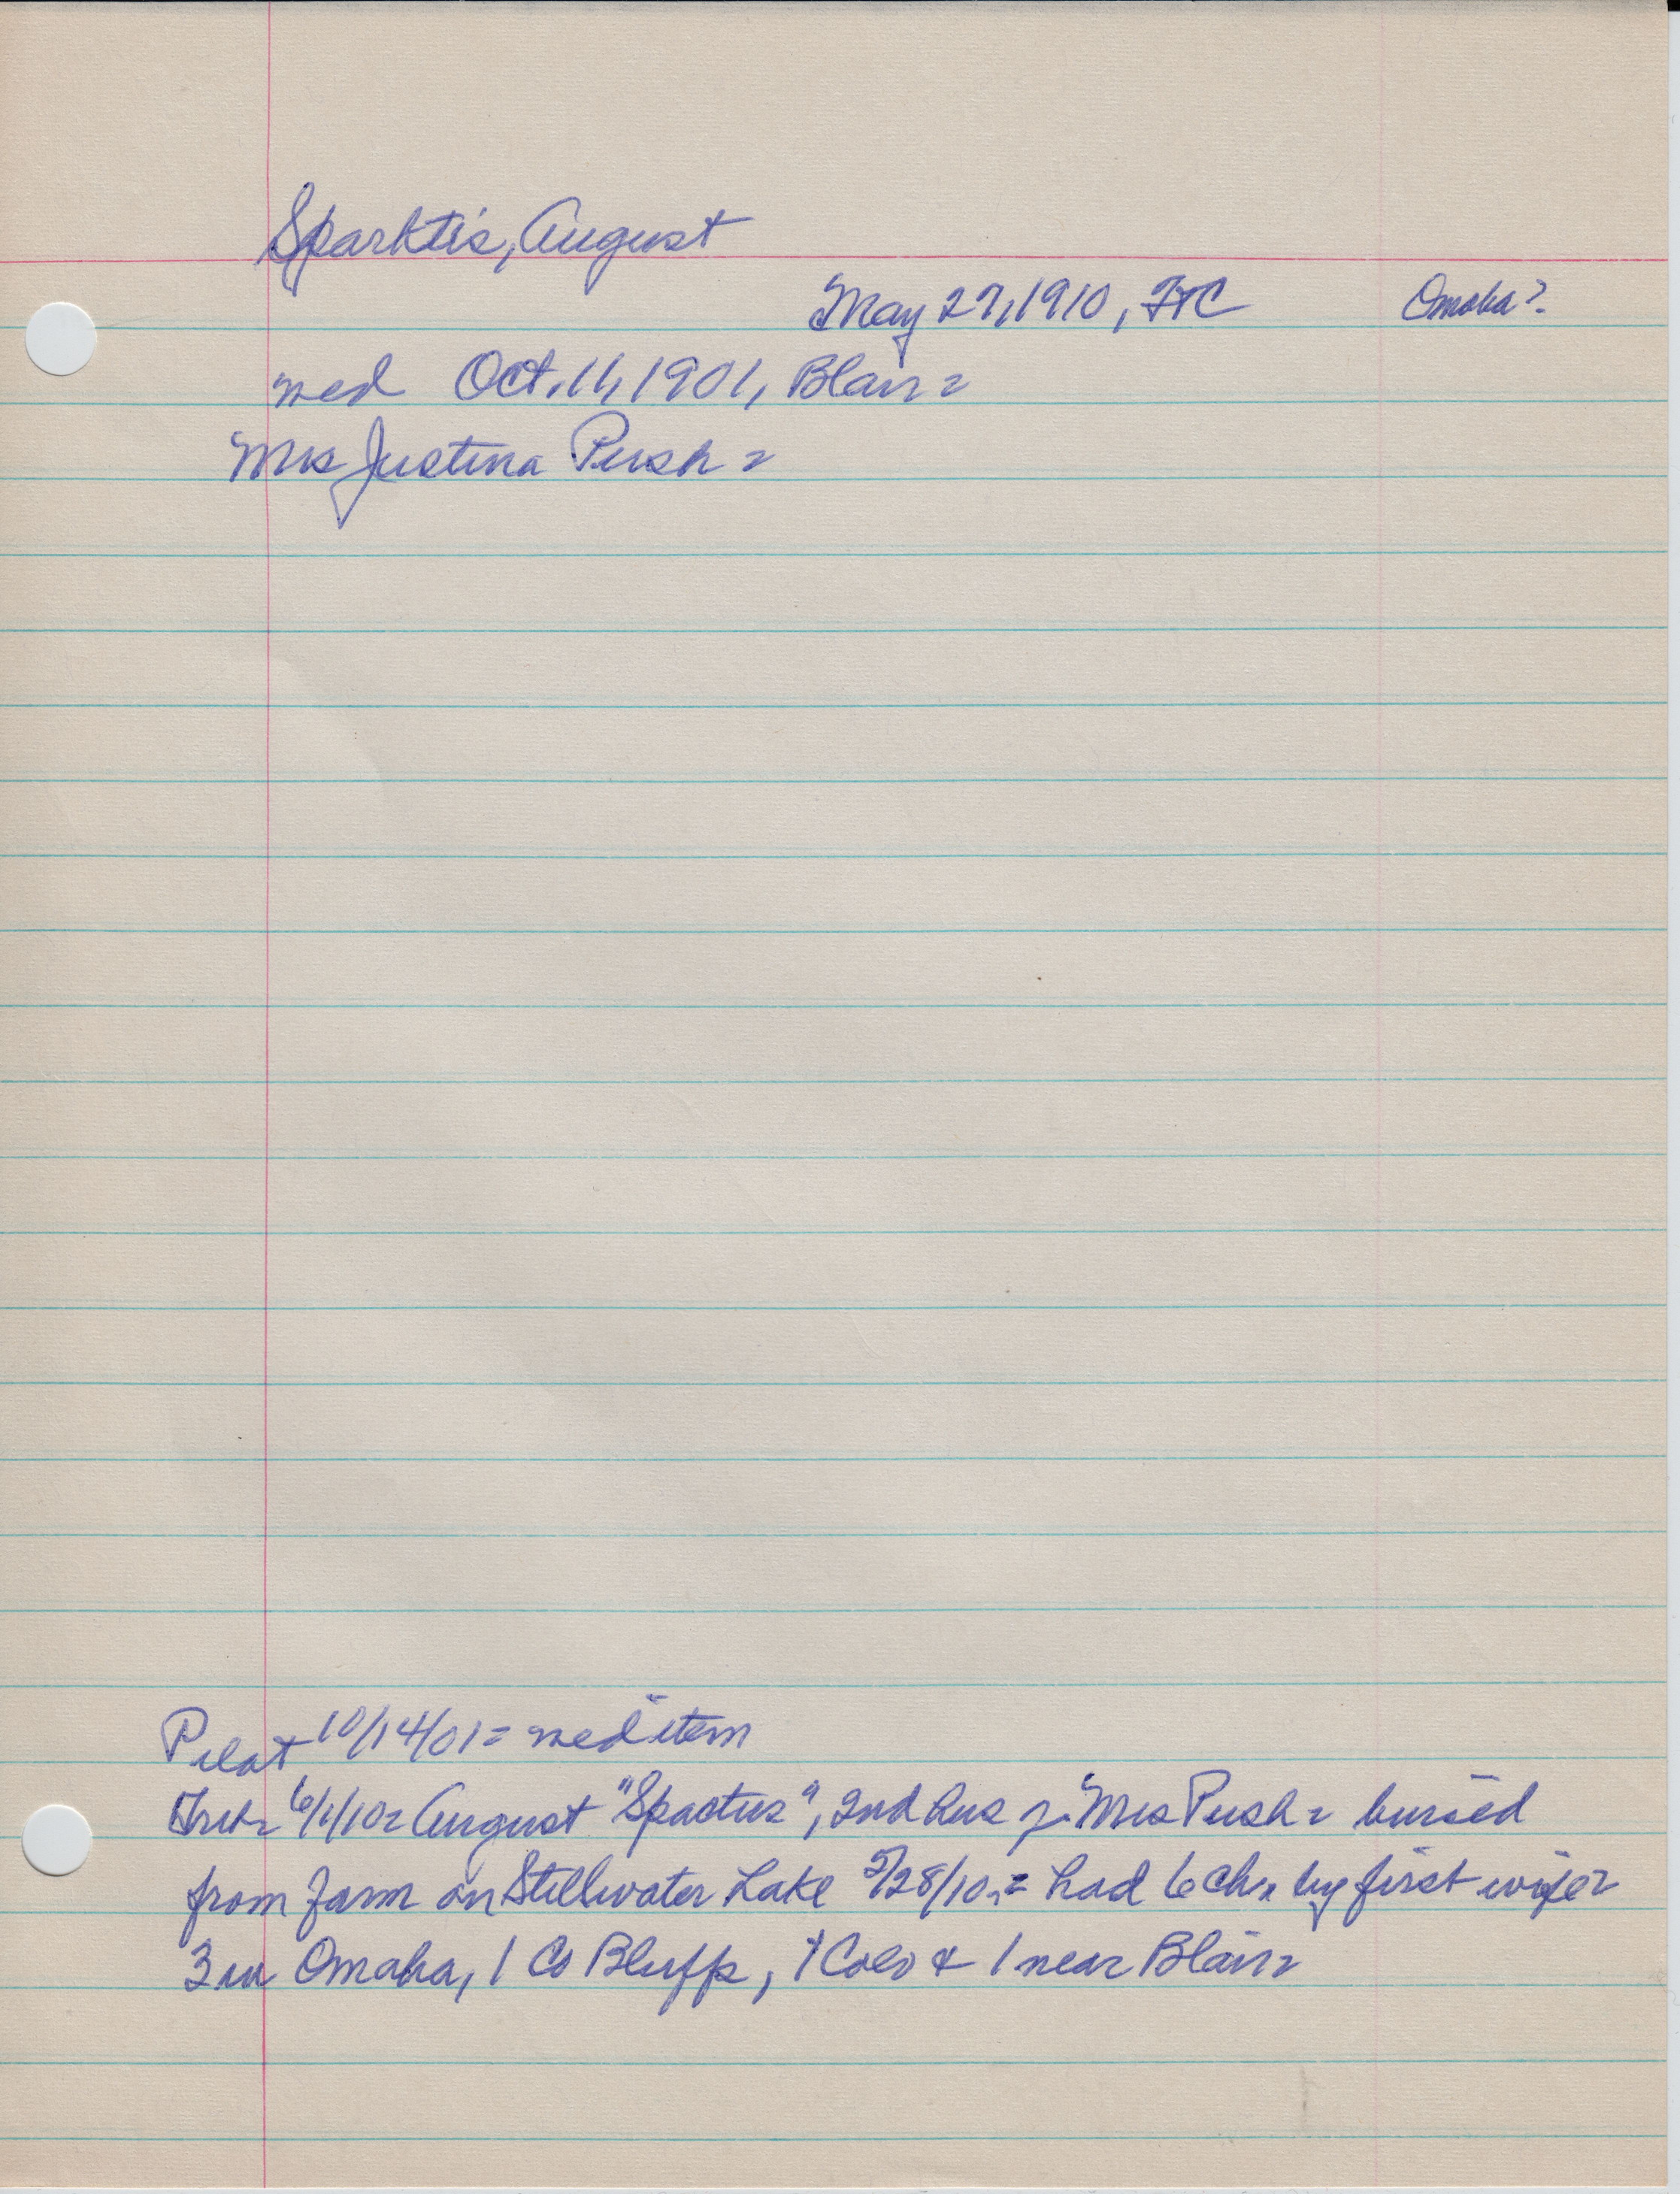 Sparktis, August
May 27, 1910, FTC Omaha?
wed Oct. 11, 1901, Blair =
Mrs Justina Push =
Pilot 10/14/01 = wed item
Trib = 6/1/10 = August "Spactus", 2nd hus of Mrs Push = buried
from farm on Stillwater Lake 5/28/10. = had 6 ch. by first wife =
3 in Omaha, 1 Co Bluffs, 1 Colo & 1 near Blair =